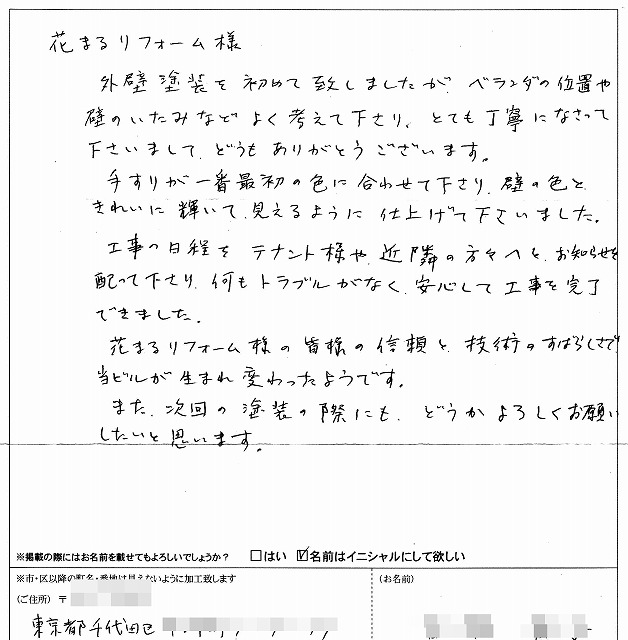 花まるリフォーム様
外壁塗装を初めて致しましたが ベランダの位置や
壁のいたみなど よく考えて下さり、とても丁寧になさって
下さいまして、どうも ありがとうございます。
手すりが一番最初の色に合わせて下さり、壁の色と
きれいに輝いて見えるように仕上げて下さいました。
工事の日程を テナント様や近隣の方々へと、お知らせを
配って下さり、何もトラブルがなく、安心して工事を完了
できました。
花まるリフォーム様の皆様の信頼と技術のすばらしさで
当ビルが生まれ変わったようです。
また、次回の塗装の際にも、どうかよろしくお願い
したいと思います。
※掲載の際にはお名前を載せてもよろしいでしょうか? □はい ☑名前はイニシャルにして欲しい
※市・区以降の町名・番地は見えないように加工致します
(お名前)
(ご住所) 〒
東京都千代田区